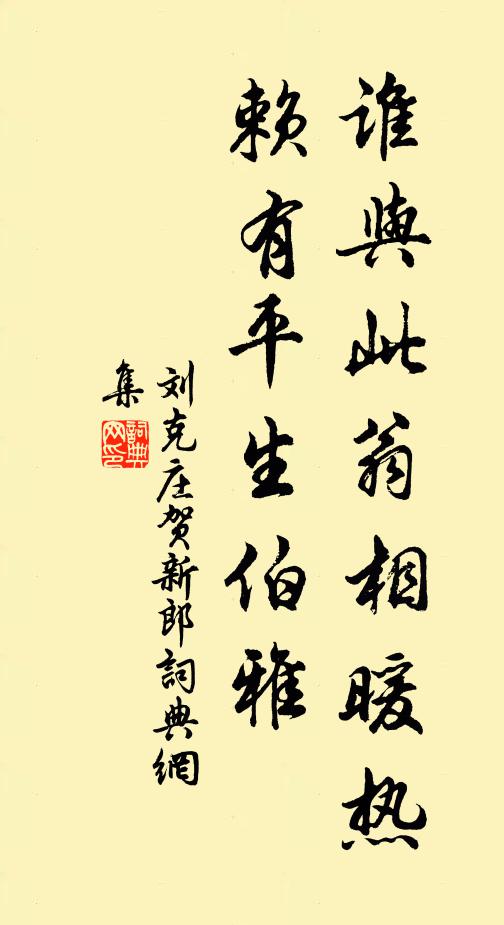 誰與此翁相暖热
賴有平生伯雅
刘克庄贺新郎詞典網
集
詞典
网印